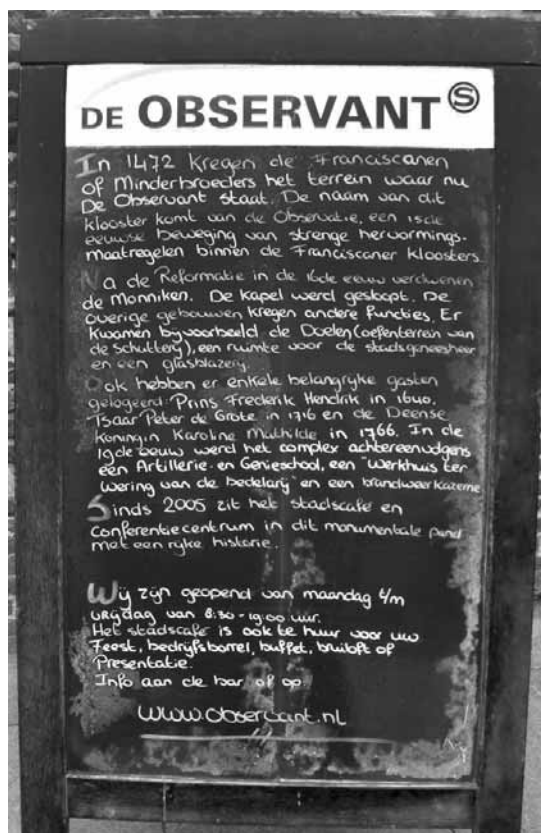 DE OBSERVANT S
In 1472 kregen de Franciscanen
of Minderbroeders het terrein waar nu
De Observant staat. De naam van dit
klooster komt van de Observatie, een 15de
eeuwse beweging van strenge hervormings-
maatregelen binnen de Franciscaner kloosters.
Na de Reformatie in de 16de eeuw verdwenen
de Monniken. De kapel werd gesloopt. De
overige gebouwen kregen andere functies. Er
kwamen bijvoorbeeld de Doelen (oefenterrein van
de Schutterij), een ruimte voor de stadsgeneesheer
en een glasblazerij.
Ook hebben er enkele belangrijke gasten
gelogeerd: Prins Frederik Hendrik in 1640,
Tsaar Peter de Grote in 1716 en de Deense
Koningin Karoline Mathilde in 1766. In de
19de eeuw werd het complex achtereenvolgens
een Artillerie- en Genieschool, een "Werkhuis ter
wering van de bedelarij" en een brandweerkazerne
Sinds 2005 zit het stadscafe en
Conferentiecentrum in dit monumentale pand
met een rijke historie.
Wij zijn geopend van maandag t/m
vrijdag van 8:30 - 19:00 uur.
Het stadscafe is ook te huur voor uw
Feest, bedrijfsborrel, buffet, bruiloft of
Presentatie.
Info aan de bar of op:
www.observant.nl